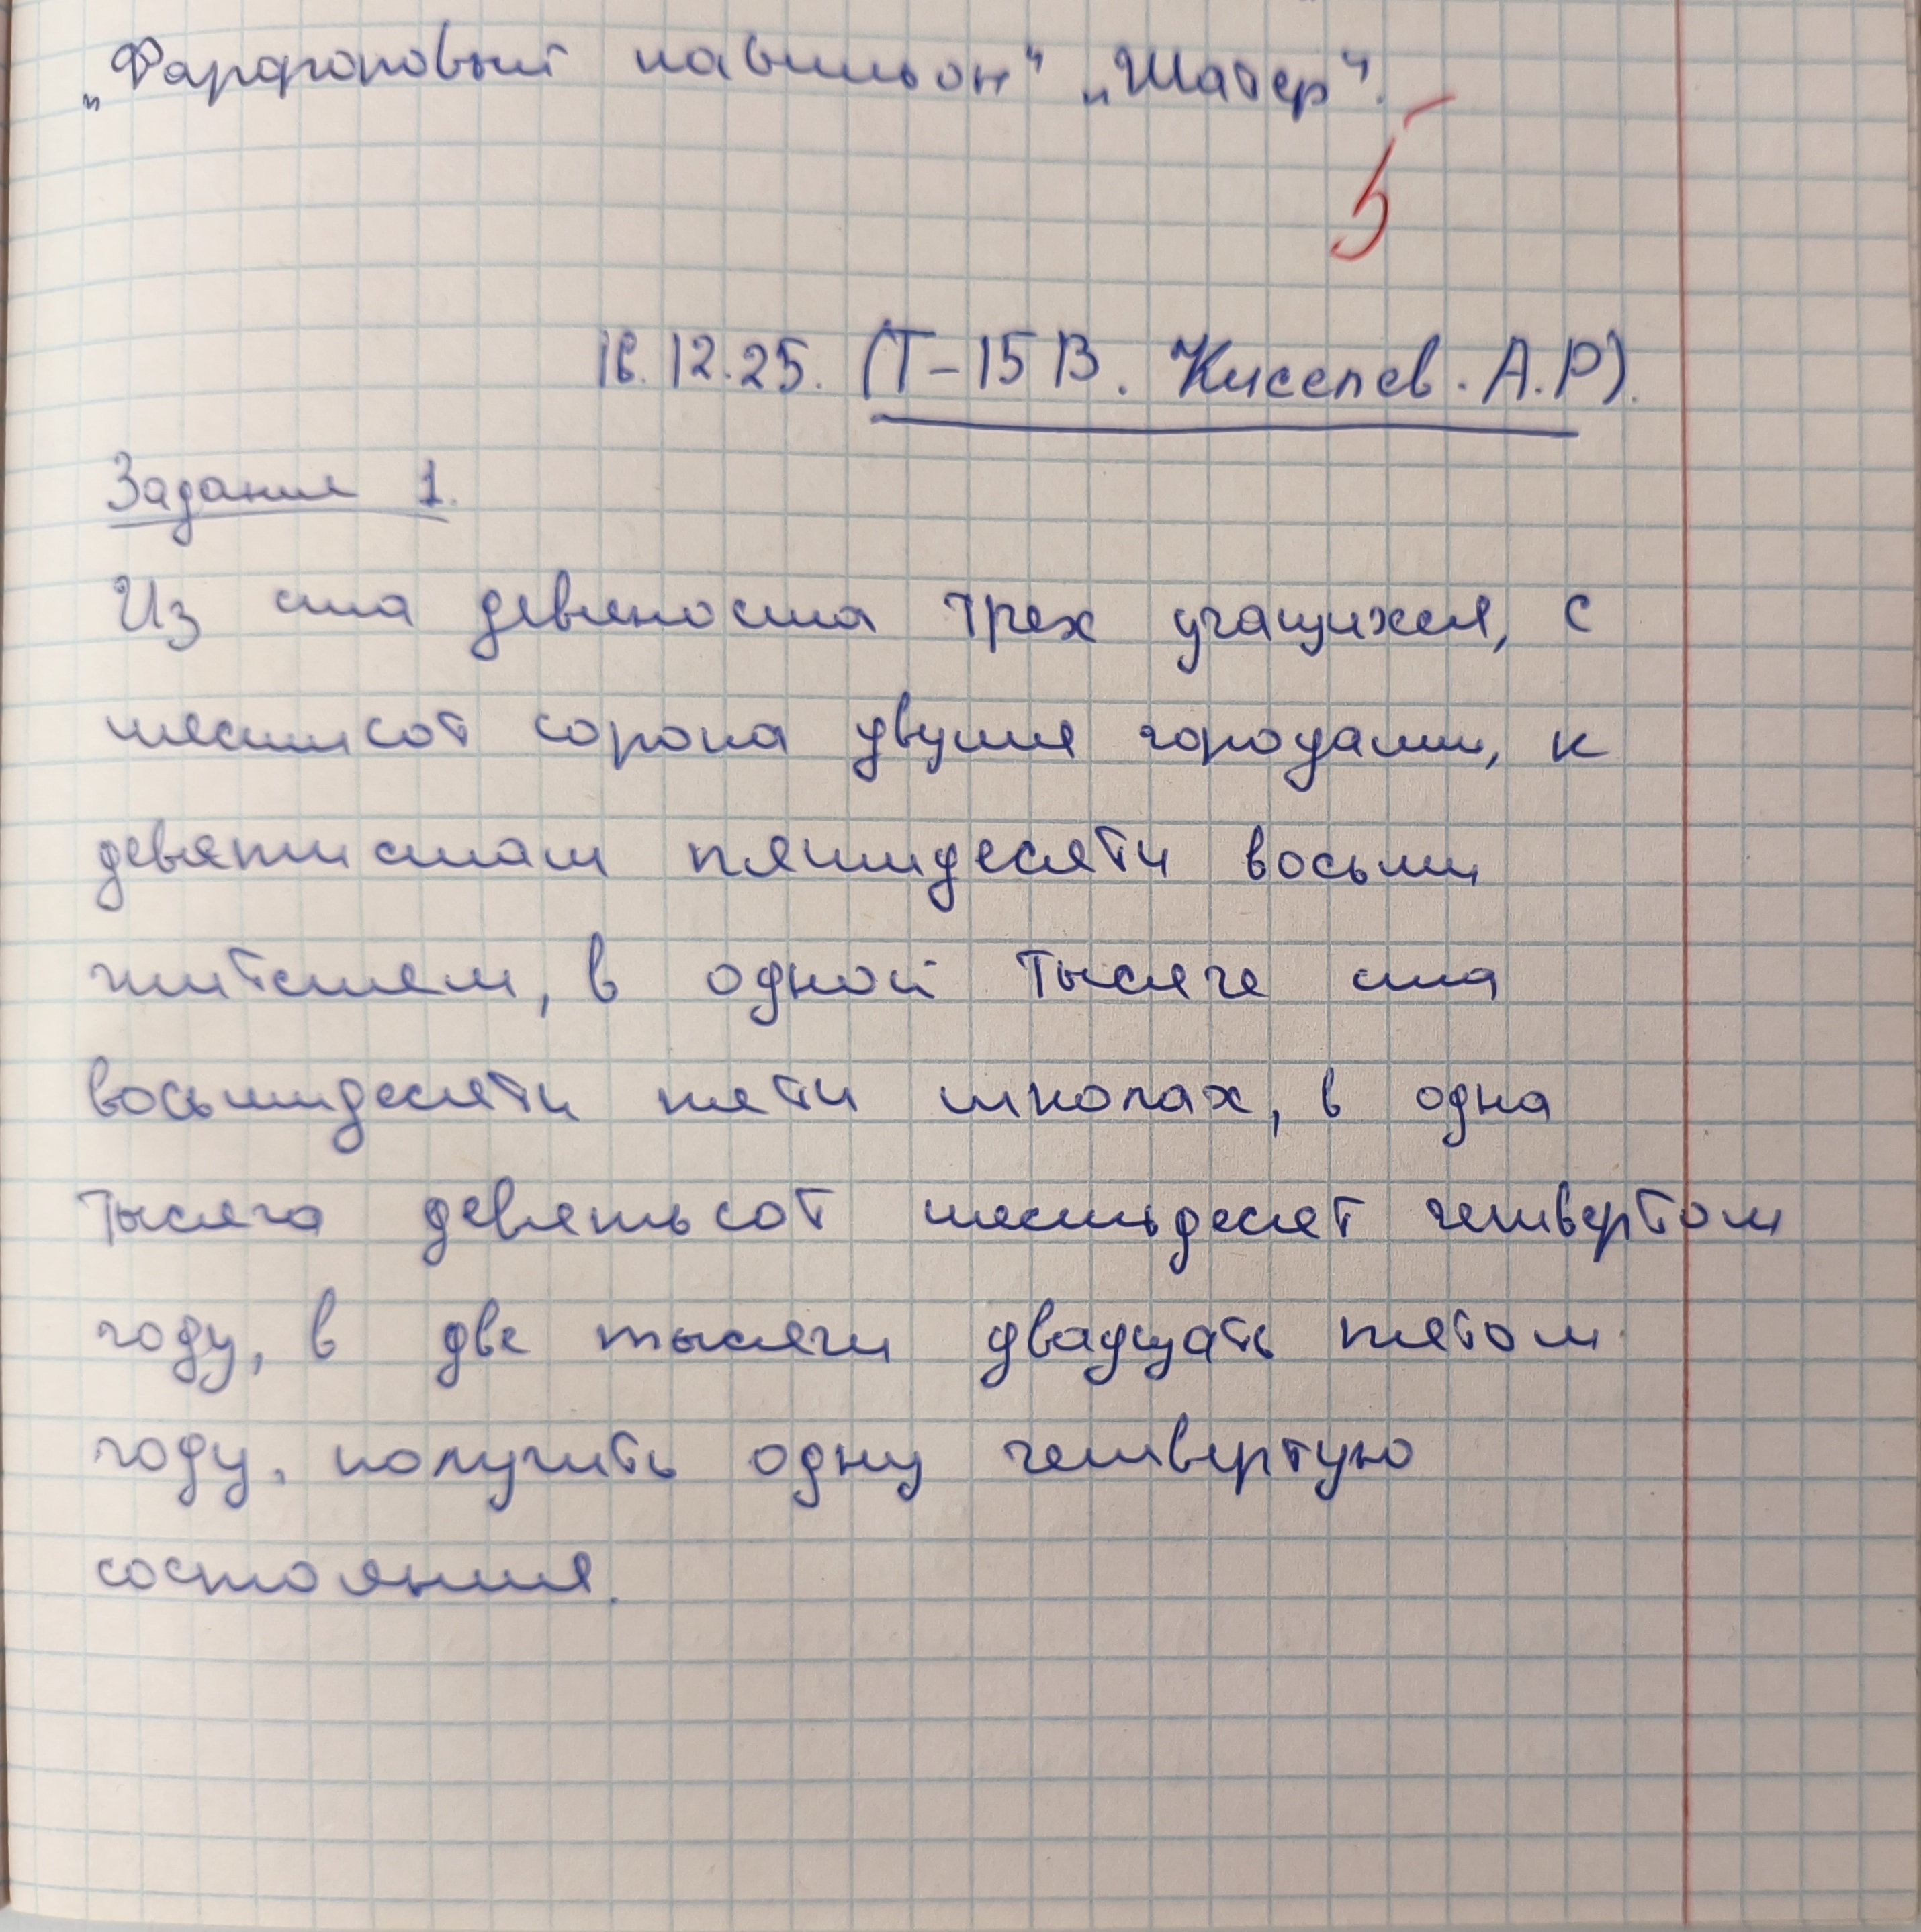 „Фарфоровый павильон" „Шатер".
5
16.12.25. (Т-15 В. Киселев. А.Р).
Задание 1.
Из ста девяноста трех учащихся, с
шестисот сорока двумя городами, к
девятистам пятидесяти восьми
жителям, в одной тысяче ста
восьмидесяти пяти школах, в одна
тысяча девятьсот шестьдесят четвертом
году, в две тысячи двадцать пятом
году, получить одну четвертую
состояния.